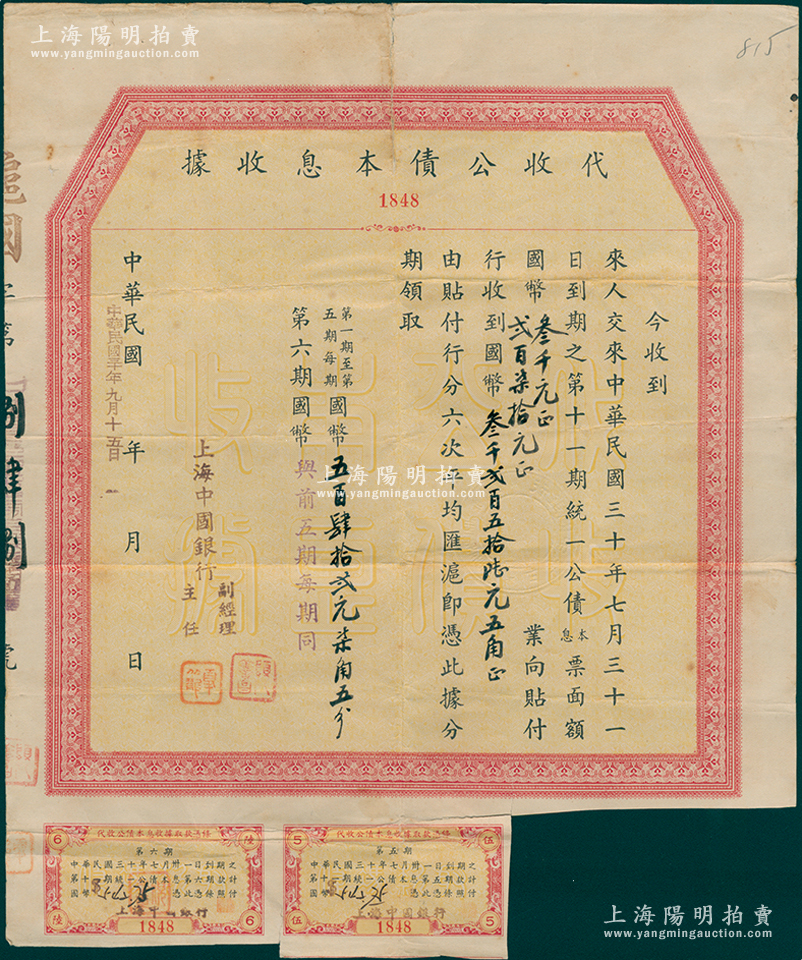 上海陽明拍賣
www.yangmingauction.com
上海陽明拍賣
www.yangmingauction.com
815
代收公債本息收據
1848
今收到
來人交來中華民國三十年七月三十一
日到期之第十一期統一公債本息票面額
國幣叁千元正 弍百柒拾元正 業向貼付
行收到國幣叁千弍百五拾陸元五角正
由貼付行分六次平均匯滬卽憑此據分
期領取
第一期至第五期每期國幣五百肆拾弍元柒角五分
第六期國幣與前五期每期同
上海中國銀行 副經理
主任
中華民國 年 月 日
中華民國三十年九月十五日
滬國字第
捌肆捌
號
上海陽明拍賣
www.yangmingauction.com
6 代收公債本息收據取款憑條 陸
第六期
中華民國三十年七月卅一日到期之
第十一期統一公債本息憑此第六期條計付
國幣
上海中國銀行
陸 1848 6
5 代收公債本息收據取款憑條 伍
第五期
中華民國三十年七月卅一日到期之
上海中國銀行
伍 1848 5
上海陽明拍賣
www.yangmingauction.com